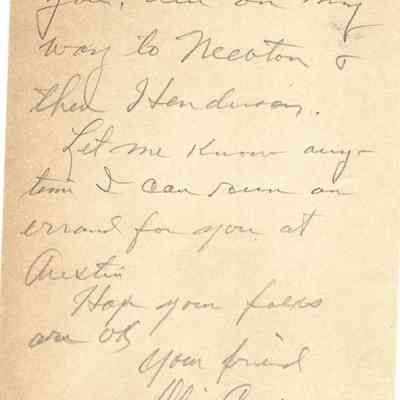 you, am on my
way to Newton &
then Henderson.
Let me know any-
time I can run an
errand for you at
Austin
Hope your folks
are OK
Your friend